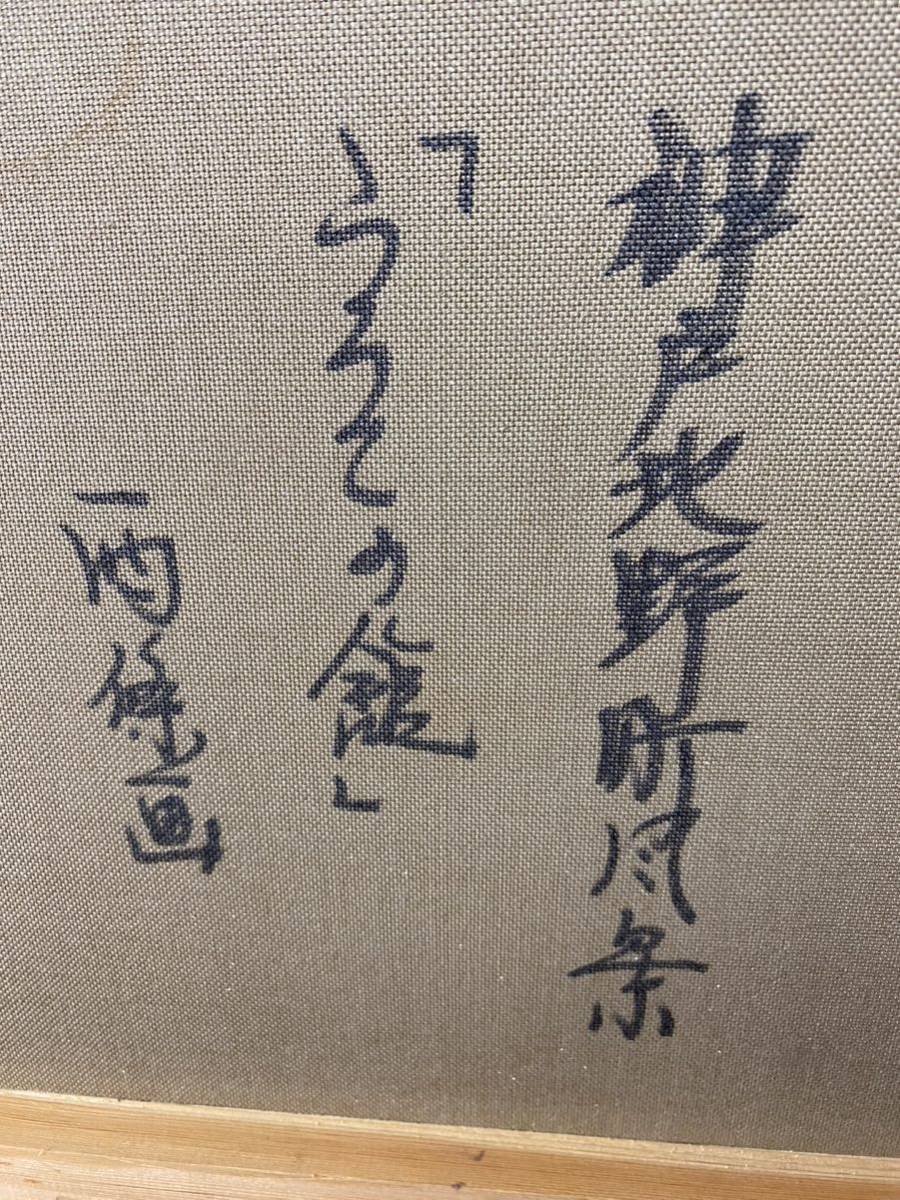 神戸北野町風景
「うろこの館」
画